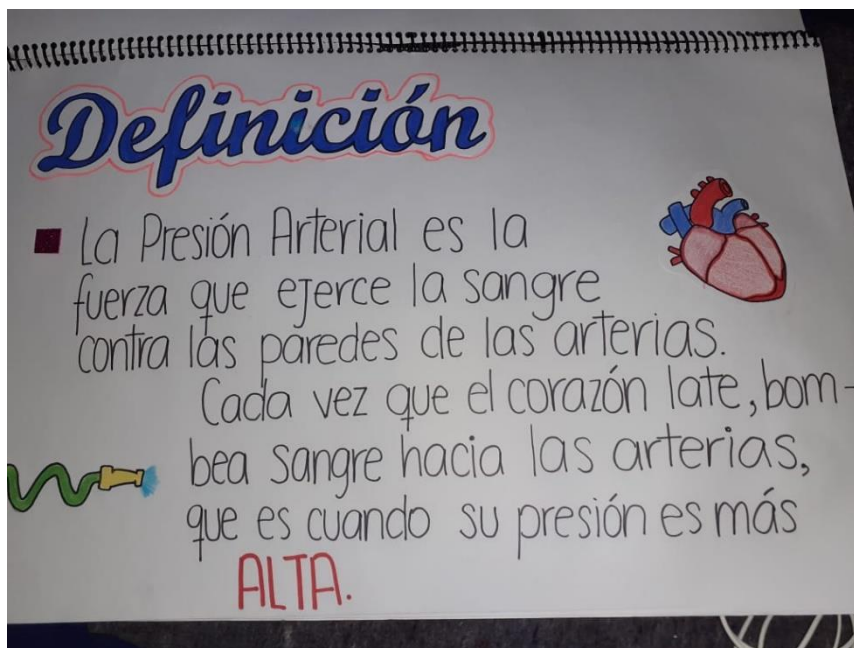 Definición
La Presión Arterial es la
fuerza que ejerce la sangre
contra las paredes de las arterias.
Cada vez que el corazón late, bom-
bea sangre hacia las arterias,
que es cuando su presión es más
ALTA.